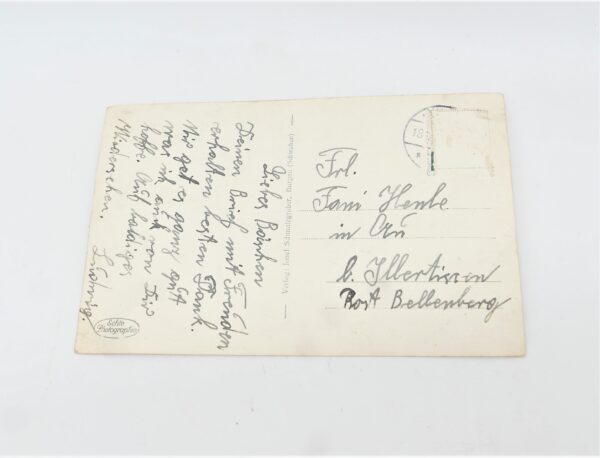 Liebes Bärbchen
Deinen Brief mit Freuden
erhalten besten Dank.
Mir geht es ganz gut
was ich auch von Dir
hoffe. Auf baldiges
Wiedersehen.
Ludwig.
Echte
Photographie
Verlag: Josef Schmalegruber, Burgau (Schwaben)
18
Frl.
Fani Henle
in Au
b. Illertissen
Post Bellenberg